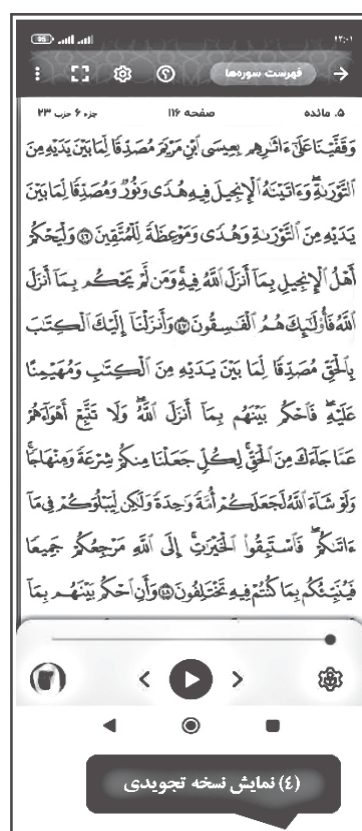 95 ۱۲:۰۱
فهرست سوره‌ها
۵. مائده صفحه ۱۱۶ جزء ۶ حزب ۲۳
وَقَفَّيْنَا عَلَىٰٓ ءَاثَـٰرِهِم بِعِيسَى ٱبْنِ مَرْيَمَ مُصَدِّقًا لِّمَا بَيْنَ يَدَيْهِ مِنَ
ٱلتَّوْرَىٰةِ ۖ وَءَاتَيْنَـٰهُ ٱلْإِنجِيلَ فِيهِ هُدًى وَنُورٌ وَمُصَدِّقًا لِّمَا بَيْنَ
يَدَيْهِ مِنَ ٱلتَّوْرَىٰةِ وَهُدًى وَمَوْعِظَةً لِّلْمُتَّقِينَ ۝٤٦ وَلْيَحْكُمْ
أَهْلُ ٱلْإِنجِيلِ بِمَآ أَنزَلَ ٱللَّهُ فِيهِ ۚ وَمَن لَّمْ يَحْكُم بِمَآ أَنزَلَ
ٱللَّهُ فَأُو۟لَـٰٓئِكَ هُمُ ٱلْفَـٰسِقُونَ ۝٤٧ وَأَنزَلْنَآ إِلَيْكَ ٱلْكِتَـٰبَ
بِٱلْحَقِّ مُصَدِّقًا لِّمَا بَيْنَ يَدَيْهِ مِنَ ٱلْكِتَـٰبِ وَمُهَيْمِنًا
عَلَيْهِ ۖ فَٱحْكُم بَيْنَهُم بِمَآ أَنزَلَ ٱللَّهُ ۖ وَلَا تَتَّبِعْ أَهْوَآءَهُمْ
عَمَّا جَآءَكَ مِنَ ٱلْحَقِّ ۚ لِكُلٍّ جَعَلْنَا مِنكُمْ شِرْعَةً وَمِنْهَاجًا ۚ
وَلَوْ شَآءَ ٱللَّهُ لَجَعَلَكُمْ أُمَّةً وَٰحِدَةً وَلَـٰكِن لِّيَبْلُوَكُمْ فِى مَآ
ءَاتَىٰكُمْ ۖ فَٱسْتَبِقُوا۟ ٱلْخَيْرَٰتِ ۚ إِلَى ٱللَّهِ مَرْجِعُكُمْ جَمِيعًا
فَيُنَبِّئُكُم بِمَا كُنتُمْ فِيهِ تَخْتَلِفُونَ ۝٤٨ وَأَنِ ٱحْكُم بَيْنَهُم بِمَآ
(٤) نمایش نسخه تجویدی